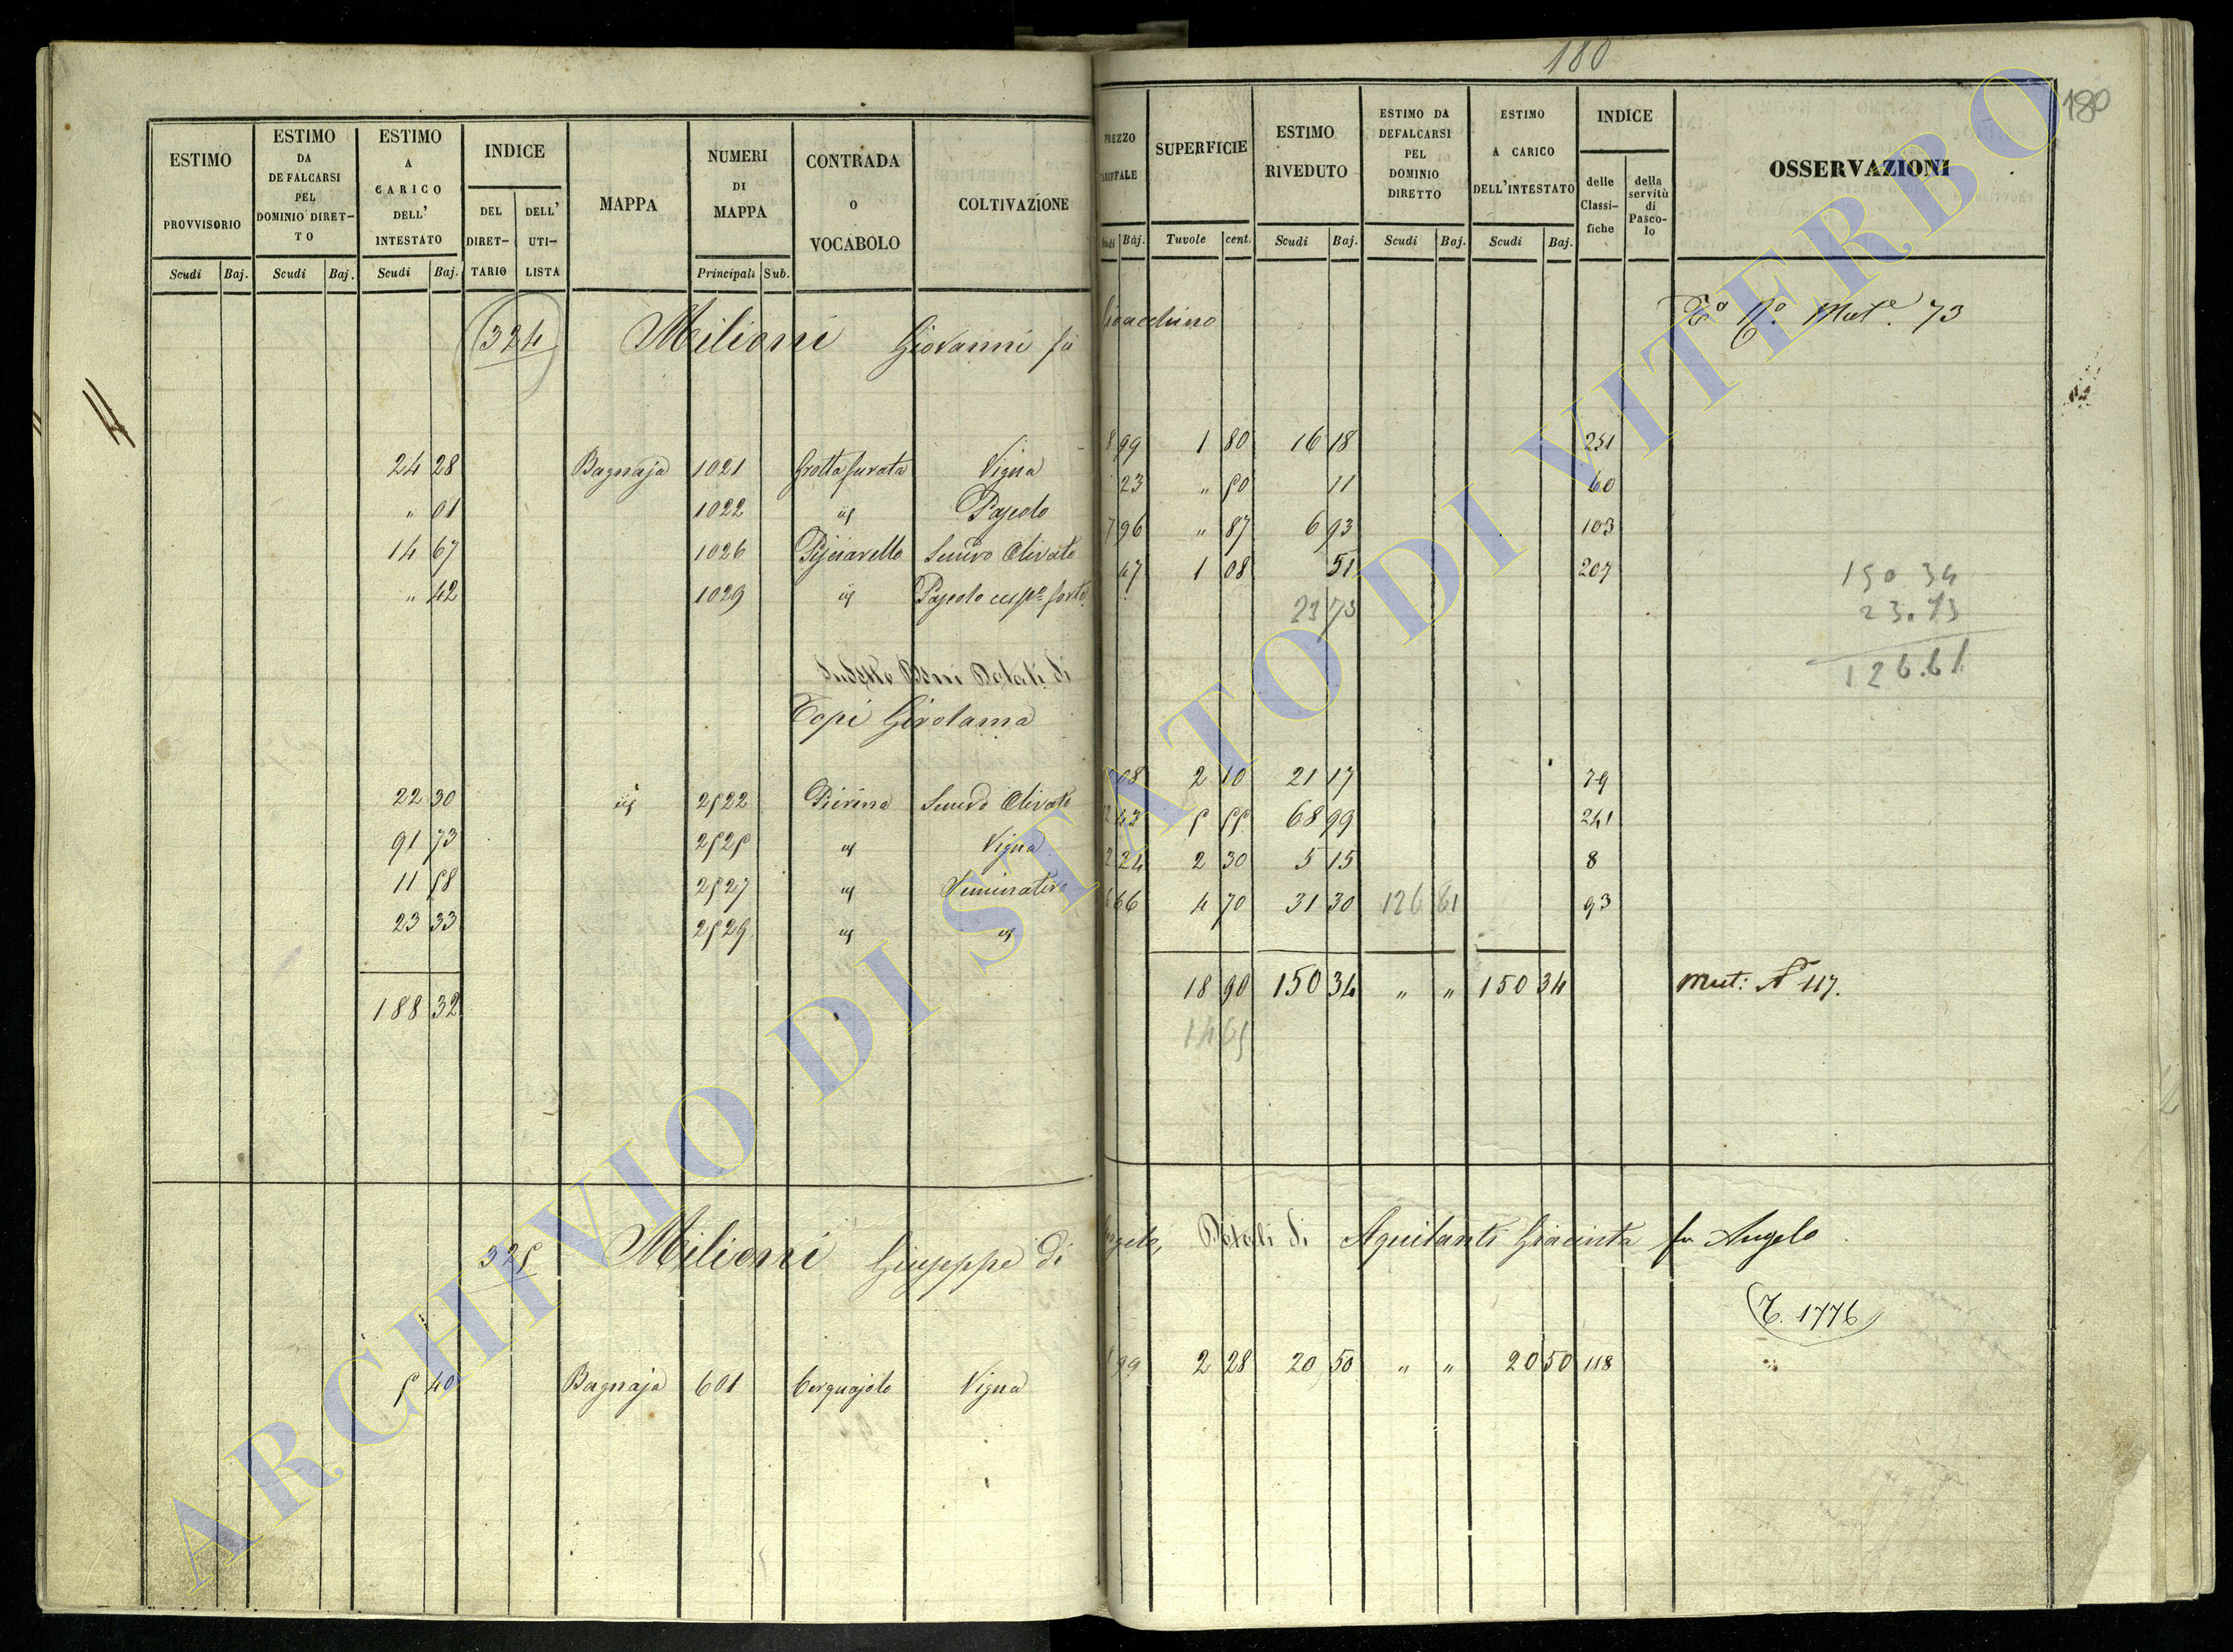 180
180
ESTIMO PROVVISORIO
ESTIMO DA DEFALCARSI PEL DOMINIO DIRET-TO
ESTIMO A CARICO DELL' INTESTATO
INDICE
DEL DIRET-TARIO
DELL' UTI-LISTA
MAPPA
NUMERI DI MAPPA
CONTRADA o VOCABOLO
COLTIVAZIONE
Scudi Baj. Scudi Baj. Scudi Baj. Principali Sub.
PREZZO
SUPERFICIE
ESTIMO RIVEDUTO
ESTIMO DA DEFALCARSI PEL DOMINIO DIRETTO
ESTIMO A CARICO DELL'INTESTATO
INDICE
delle Classi-fiche
della servitù di Pasco-lo
OSSERVAZIONI
Baj. Tavole cent. Scudi Baj. Scudi Baj. Scudi Baj.
324 Milioni Giovanni fu Gioacchino
73
24 28 Bagnaja 1021 Grotta furata Vigna 8 99 1 80 16 18 251
" 01 1022 Pascolo 23 " 50 11 60
14 67 1026 Olivato 7 96 " 87 6 93 103
" 42 1029 Pascolo forte 47 1 08 51 207
23 73
150 34
23.73
126.61
Sudetto Beni Dotali di
Topi Girolama
22 30 2522 Pierina Olivato 08 2 10 21 17 79
91 73 2525 Vigna 43 5 55 68 99 241
11 58 2527 Seminativo 2 24 2 30 5 15 8
23 33 2529 66 4 70 31 30 126 61 93
188 32 18 90 150 34 " " 150 34 Mut: N 117.
14 65
325 Milioni Giuseppe di Angelo, Dotali di Aquilanti Giacinta fu Angelo
1776
5 40 Bagnaja 601 Cerquajolo Vigna 99 2 28 20 50 " " 20 50 118
ARCHIVIO DI STATO DI VITERBO